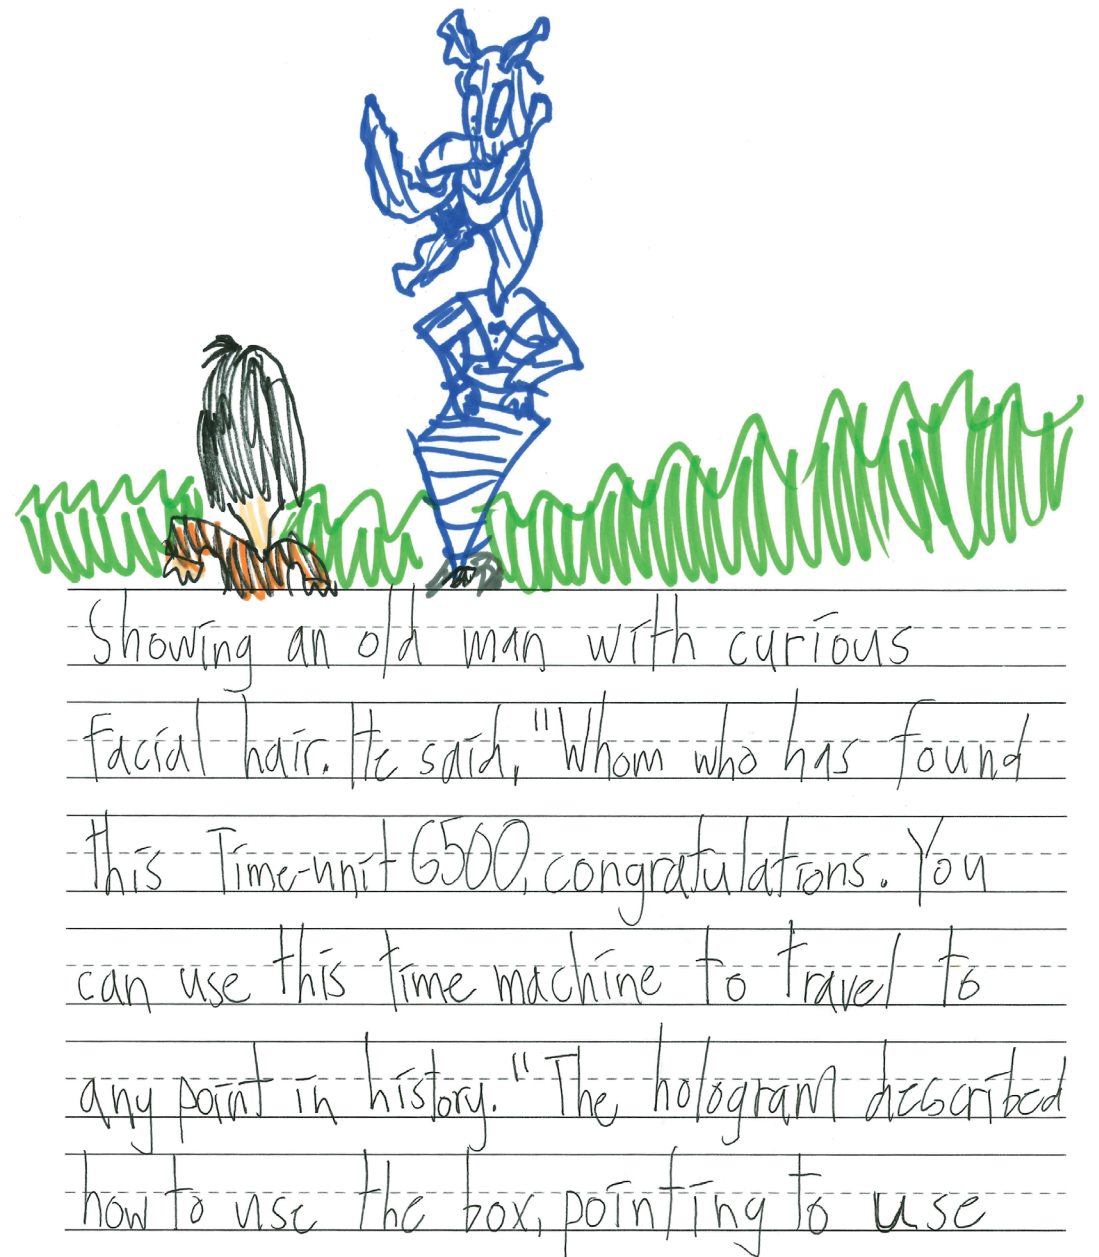 Showing an old man with curious
facial hair. He said, "Whom who has found
this Time-unit 6500, congratulations. You
can use this time machine to travel to
any point in history." The hologram described
how to use the box, pointing to use